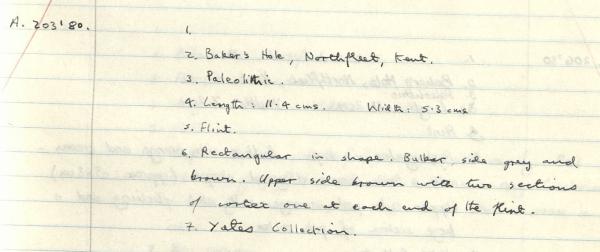 A. 203'80.
1.
2. Baker's Hole, Northfleet, Kent.
3. Paleolithic.
4. Length: 11.4 cms. Width: 5.3 cms
5. Flint.
6. Rectangular in shape. Bulbar side grey and
brown. Upper side brown with two sections
of cortex one at each end of the flint.
7. Yates Collection.